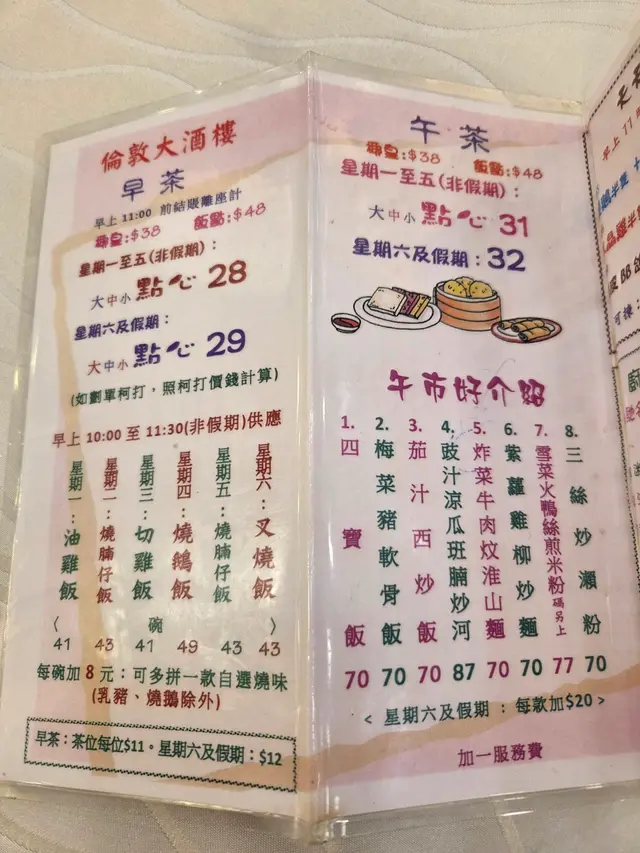 倫敦大酒樓
早茶
早上 11:00 前結賬離座計
御皇:$38 飯點:$48
星期一至五(非假期):
大中小 點心 28
星期六及假期:
大中小 點心 29
(如劃單柯打，照柯打價錢計算)
早上 10:00 至 11:30(非假期)供應
星期一：油雞飯
星期二：燒腩仔飯
星期三：切雞飯
星期四：燒鵝飯
星期五：燒腩仔飯
星期六：叉燒飯
〈 碗 〉
41 43 41 49 43 43
每碗加 8 元：可多拼一款自選燒味
(乳豬、燒鵝除外)
早茶：茶位每位$11。星期六及假期：$12
午茶
御皇:$38 飯點:$48
星期一至五(非假期):
大中小 點心 31
星期六及假期: 32
午市好介紹
1. 四寶飯
2. 梅菜豬軟骨飯
3. 茄汁西炒飯
4. 豉汁涼瓜班腩炒河
5. 炸菜牛肉炆淮山麵
6. 紫蘿雞柳炒麵
7. 雪菜火鴨絲煎米粉 碼另上
8. 三絲炒瀨粉
70 70 70 87 70 70 77 70
< 星期六及假期 : 每款加$20 >
加一服務費
早上 11